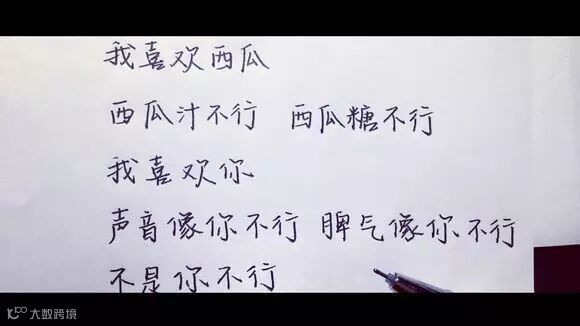 我喜欢西瓜
西瓜汁不行 西瓜糖不行
我喜欢你
声音像你不行 脾气像你不行
不是你不行
大数跨境